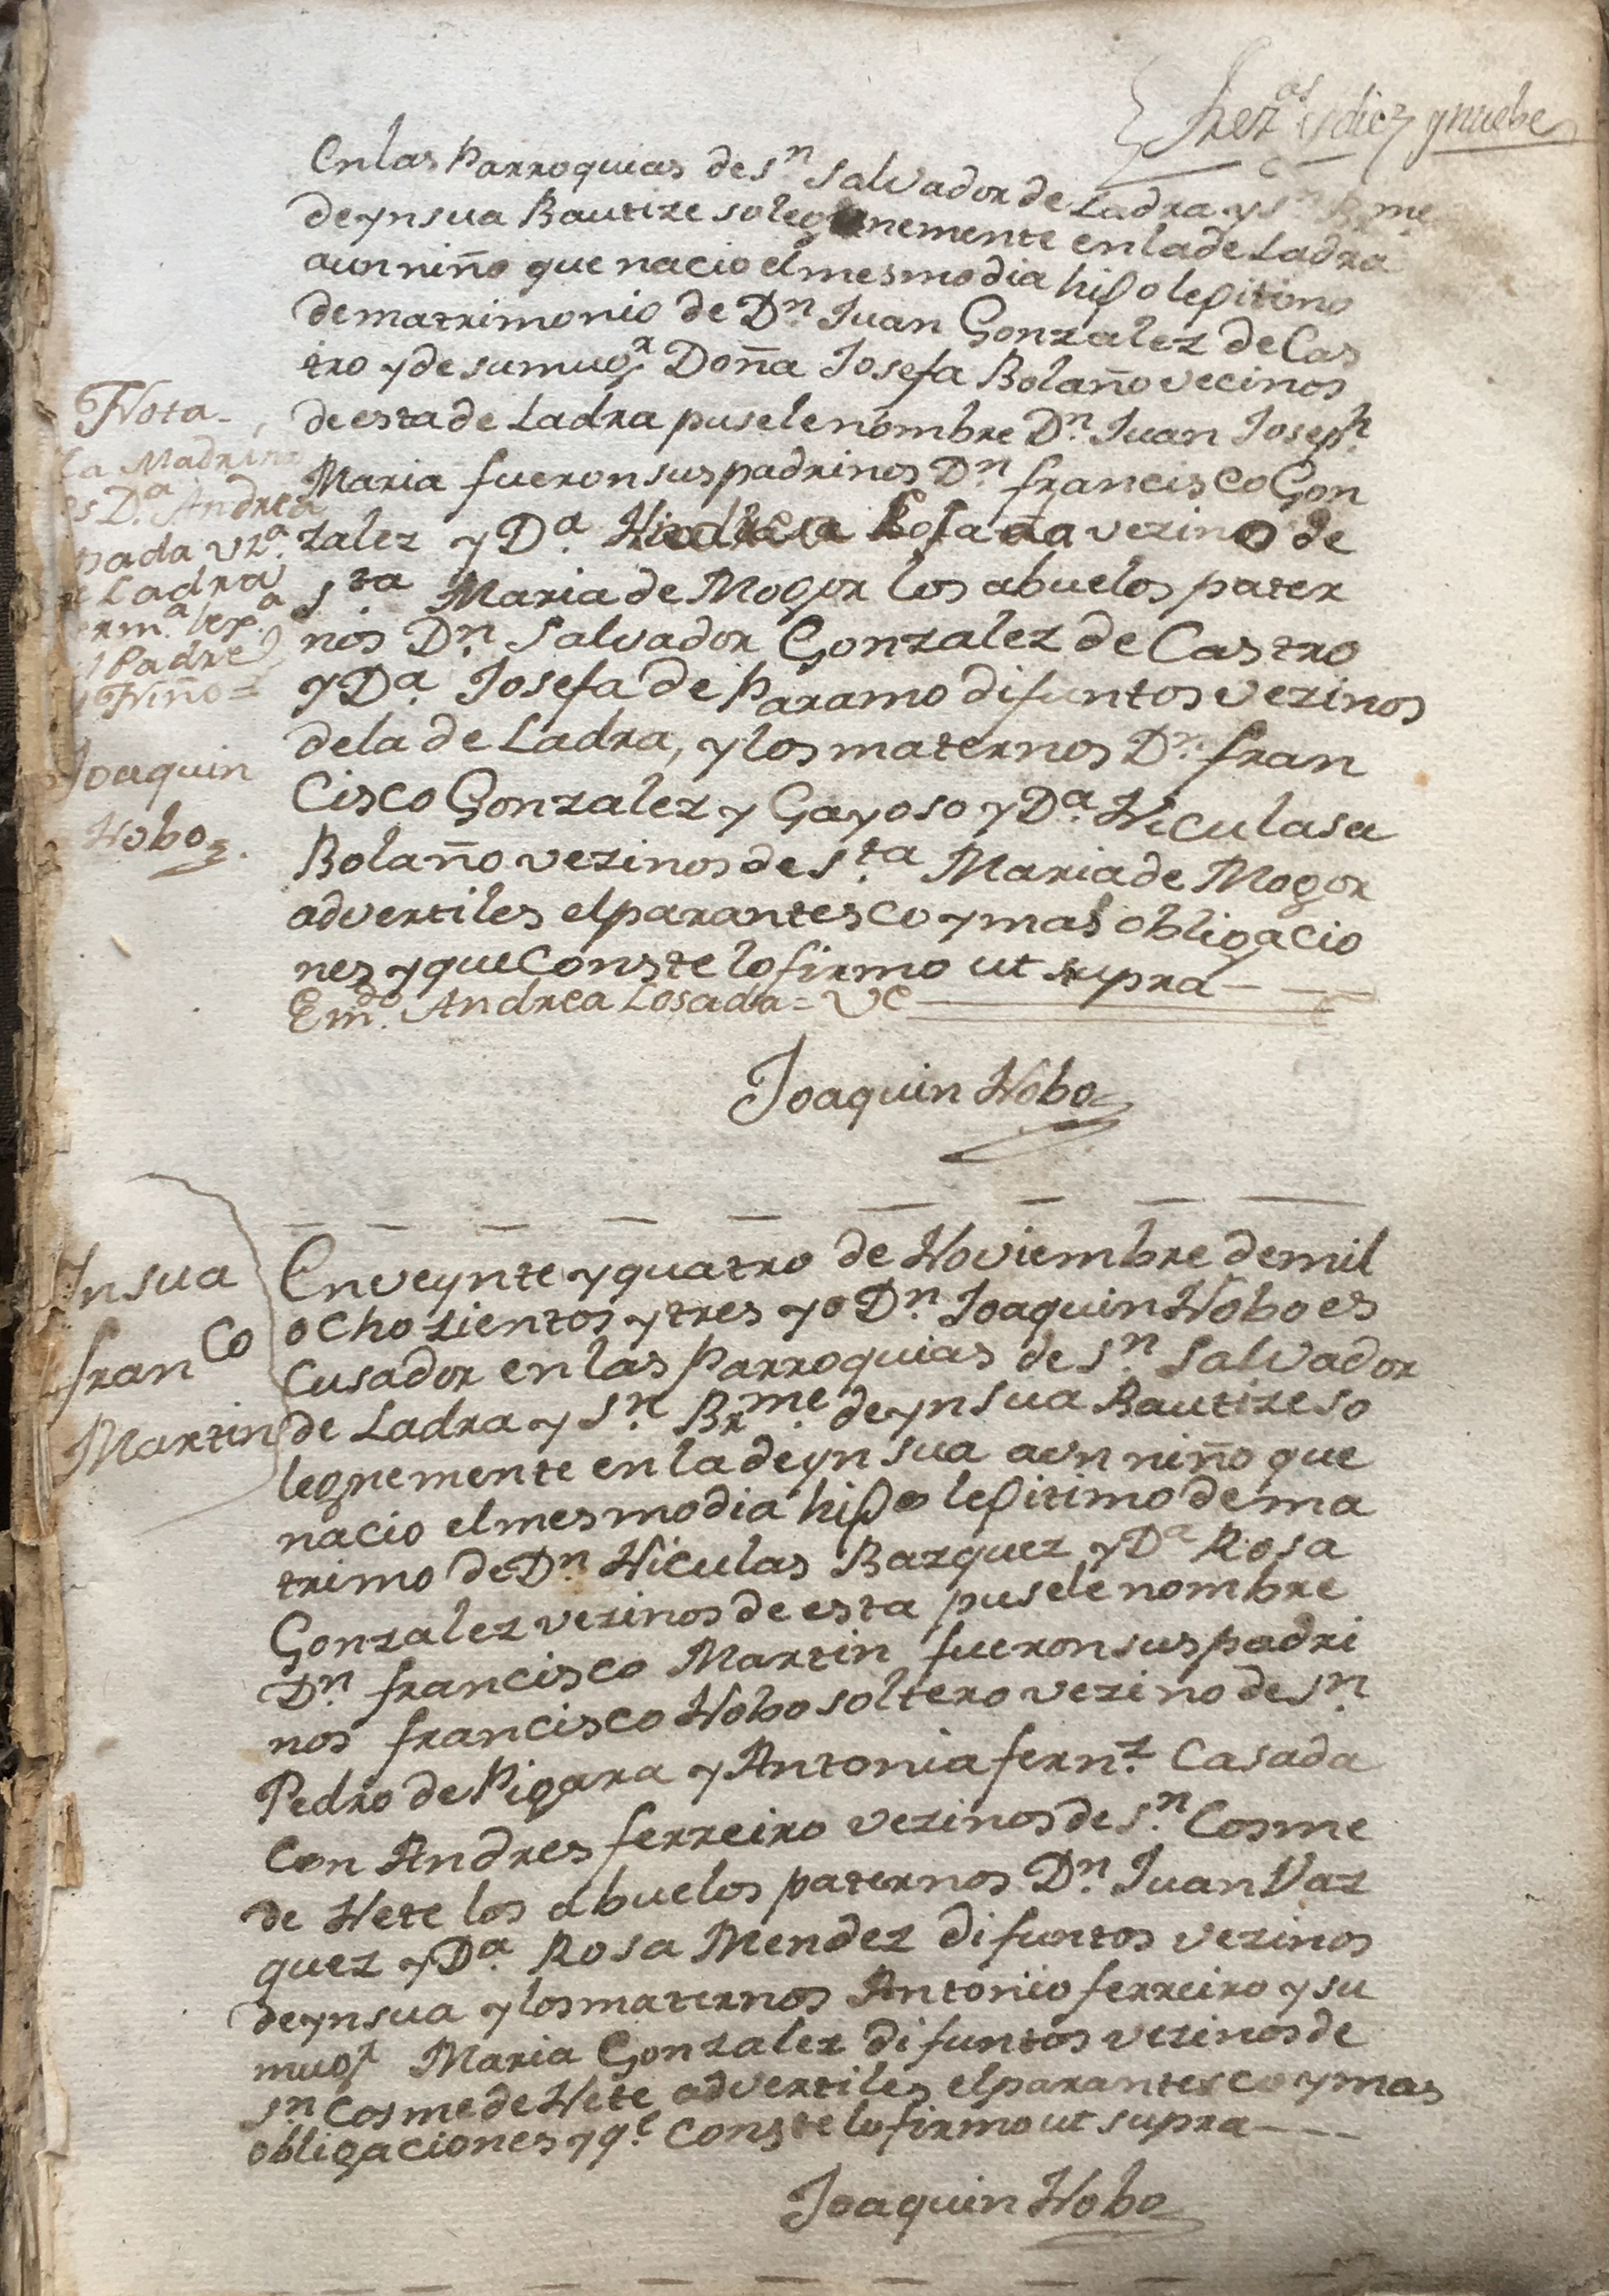 trez.os y diez y nuebe
En las Parroquias de S.n Salvador de Ladra y S.n B.me
de ynsua Bautize solegnemente en la de Ladra
a un niño que nacio el mesmo dia hijo lejitimo
de matrimonio de D.n Juan Gonzalez de Cas
tro y de su mug.r Doña Josefa Bolaño vecinos
de esta de Ladra pusele nombre D.n Juan Joseph
Maria fueron sus padrinos D.n francisco Gon
zalez y D.a Losada vezino de
S.ta Maria de Mogor los abuelos pater
nos D.n Salvador Gonzalez de Castro
y D.a Josefa de Paramo difuntos vezinos
de la de Ladra, y los maternos D.n fran
cisco Gonzalez y Gayoso y D.a Niculasa
Bolaño vezinos de S.ta Maria de Mogor
advertiles el parantesco y mas obligacio
nes y que Conste lo firmo ut supra
Em.do Andrea Losada = Ve
Joaquin Nobo
Nota
La Madrina
es D.a Andrea
sada vz.a
e Ladra
erm.a lex.a
l Padre
l Niño =
Joaquin
Nobo
Insua
fran.co
Martin
En veynte y quatro de Noviembre de mil
ocho zientos y tres yo D.n Joaquin Nobo es
cusador en las Parroquias de S.n Salvador
de Ladra y S.n Br.me de ynsua Bautize so
legnemente en la de ynsua a un niño que
nacio el mesmo dia hijo lejitimo de ma
trimo de D.n Niculas Bazquez y D.a Rosa
Gonzalez vezinos de esta pusele nombre
D.n francisco Martin fueron sus padri
nos francisco Nobo soltero vezino de S.n
Pedro de Pigara y Antonia fern.z Casada
Con Andres ferreiro vezinos de S.n Cosme
de Nete los abuelos paternos D.n Juan Vaz
quez y D.a Rosa Mendez difuntos vezinos
de ynsua y los maternos Antonio ferreiro y su
mug.r Maria Gonzalez difuntos vezinos de
S.n Cosme de Nete advertiles el parantesco y mas
obligaciones y q.e Conste lo firmo ut supra
Joaquin Nobo